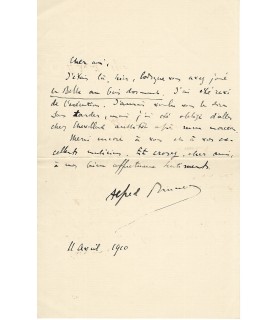 Cher ami,
J'étais là, hier, lorsque vous avez joué
la Belle au bois dormant. J'ai été ravi
de l'exécution. J'aurais voulu vous le dire
sans tarder, mais j'ai été obligé d'aller
chez Chevillard aussitôt après mon morceau
Merci encore à vous et à vos ex-
cellents musiciens. Et croyez, cher ami,
à mes bien affectueux sentiments.
Alfred Bruneau
11 avril 1900